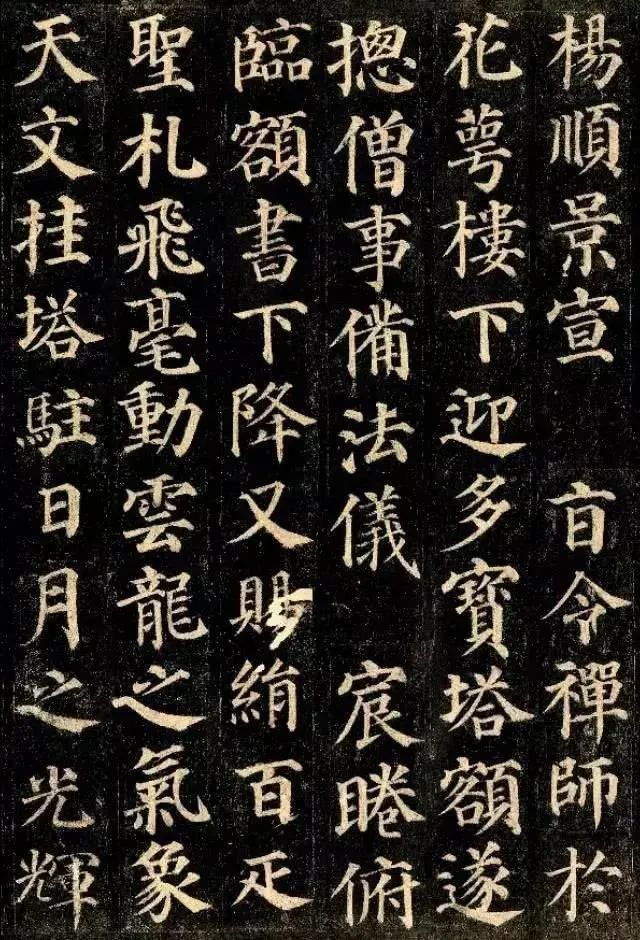 楊順景宣 㫖令禪師於
花萼樓下迎多寶塔額遂
摠僧事備法儀 宸睠俯
臨額書下降又賜絹百疋
聖札飛毫動雲龍之氣象
天文挂塔駐日月之光輝